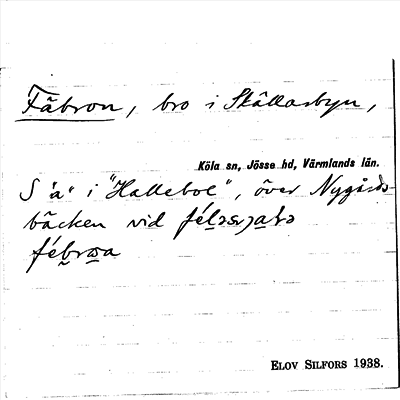 Fäbron, bro i Skällarbyn,
Köla sn, Jösse hd, Värmlands län.
S "a" i "Hallebol", över Nygårds-
bäcken vid
ELOV SILFORS 1938.